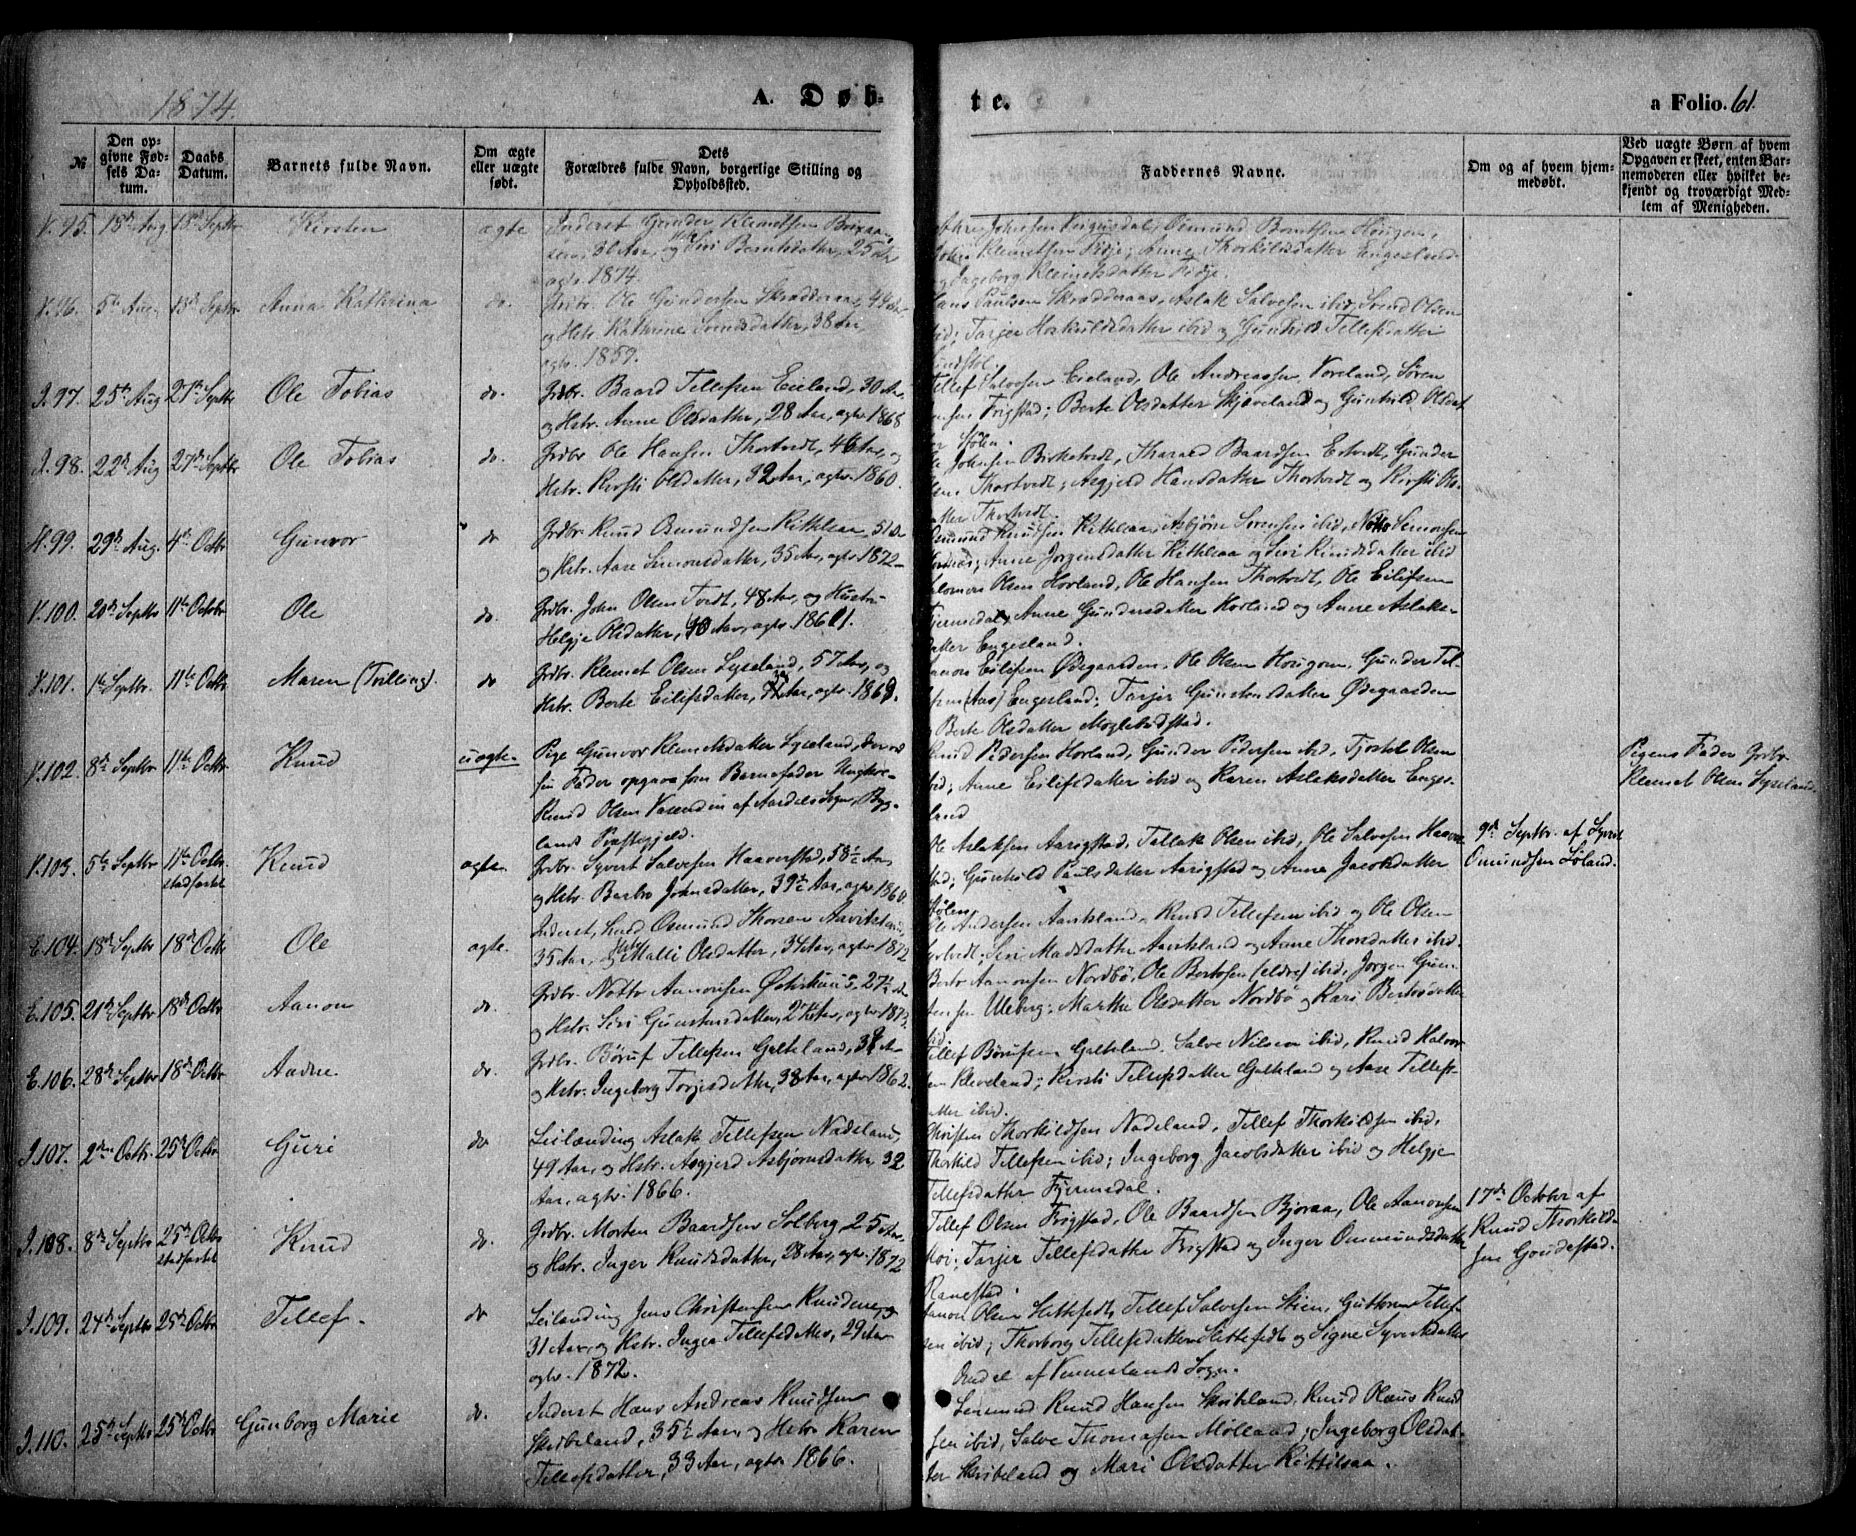 1874.
A. Døb-
te.
a Folio. 61.
№
Den op-
givne Fød-
sels Da-
tum.
Daabs
Datum.
Barnets fulde Navn.
Om ægte
eller uægte
født.
Dets
Forældres fulde Navn, borgerlige Stilling og
Opholdssted.
Faddernes Navne.
Om og af hvem hjem-
medøbt.
Ved uægte Børn af hvem
Opgaven er skeet, enten Bar-
nemoderen eller hvilket be-
kjendt og troværdigt Med-
lem af Menigheden.
95. 18de Aug 13de Septbr Kirsten ægte Inderst Gunder Klemetsen
30 Aar, og Hstr Siri Berntsdatter, 25 Aar
agtv. 1874.
5te Aug. 13de Septbr Anna Kathrina do. Grdbr. Ole Gundersen Skrædderaas, 44 Aar
og Hstr. Kathrine Svendsdatter, 38 Aar,
agtv. 1859.
Paulsen Skrædderaas, Aslak Salvesen ibid, Svend Olsen
Tarjer Thorkildsdatter ibid og Gunhild Tellefsdatter
J. 97. 25de Aug 27de Septbr Ole Tobias do. Grdbr. Baard Tellefsen Eieland, 30 Aar,
og Hstr. Anne Olsdatter, 28 Aar, agtv. 1868
Tellef Salvesen Eieland, Ole Andreassen Voreland, Søren
Frigstad; Berte Olsdatter Skjæveland og Gunhild Olsdat
J. 98. 22de Aug 27de Septbr Ole Tobias do. Grdbr Ole Hansen Thortvedt, 46 Aar, og
Hstr. Kirsti Olsdatter, 32 Aar, agtv. 1860.
Johnsen Birketvedt, Tharald Baardsen Eitvedt, Gunder
Thortvedt; Asgjerd Hansdatter Thortvedt og Kirsti Ols-
datter Thortvedt.
H. 99. 29de Aug. 4de Octbr Gunvor do Grdbr Knud Osmundsen Kittilsaa, 51 Aar
og Hstr. Aase Simonsdatter, 35 Aar, agtv. 1872
Osmund Knudsen Kittilsaa, Asbjørn Sørensen ibid, Notto Simonsen
Anne Jørgensdatter Kittilsaa og Siri Knudsdatter ibid
V. 100. 20de Septbr 11te Octobr Ole do. Grdbr. John Olsen Tvedt, 48 Aar, og Hustru
Helgje Olsdatter, 40 Aar, agtv. 1861.
Salomon Olsen Horland, Ole Hansen Thortvedt, Ole Eilifsen
Fjermedal, Anne Gundersdatter Horland og Anne Aslaks-
datter Engesland.
V. 101. 1ste Septbr. 11te Octbr Maren (Tvilling). do Grdbr. Klemet Olsen Lyseland, 57 Aar, og
Hstr. Berte Eilifsdatter, Aar, agtv. 1868.
Aanon Eilifsen Ødegaarden, Ole Olsen Hougom, Gunder Tel-
lefsen (Aas) Engesland; Tarjer Gunstensdatter Ødegaarden
Berte Olsdatter Moglebustad.
V. 102. 8de Septbr 11te Octbr Knud uægte. Pige Gunvor Klemetsdatter Lyseland, der ved
sin Fader opgav som Barnefader Ungkarl
Knud Olsen Valend af Aardals Sogn, Byg-
lands Præstegjeld.
Knud Pedersen Horland, Gunder Pedersen ibid, Fjostel Olsen
ibid; Anne Eilifsdatter ibid og Karen Aslaksdatter Enges-
land
Pigens Fader Grdbr.
Klemet Olsen Lyseland.
V. 103. 5te Septbr 11te Octbr. stadfæstet Knud ægte. Grdbr. Syvert Salvesen Haaverstad, 58½ Aar
og Hstr. Barbro Johnsdatter, 39½ Aar, agtv. 1860.
Ole Aslaksen Aarigstad, Tallak Olsen ibid, Ole Salvesen Haaver-
stad; Gunhild Paulsdatter Aarigstad og Anne Jacobsdatter
Stølen
9de Septbr. af Syvert
Omundsen Løland.
E. 104. 18de Septbr 18de Octbr Ole ægte. Inderst, Smed Osmund Thorsen
35 Aar, og Hstr Malli Olsdatter, 34 Aar, agtv. 1872
Ole Andersen Aarksland, Knud Tellefsen ibid og Ole Olsen
Siri Madsdatter Aarksland og Anne Thorsdatter ibid.
E. 105. 21de Septbr 18de Octbr Aanon do. Grdbr. Notto Aanonsen Østerhuus, 27½ Aar
og Hstr. Siri Gunstensdatter, 27 Aar, agtv. 1873.
Berto Aanonsen Nordbø, Ole Bertosen (eldre) ibid, Jørgen Gun-
stensen Uleberg; Marthe Olsdatter Nordbø og Kari Bertosdatter
ibid.
E. 106. 28de Septbr 18de Octbr Aadne. do. Grdbr. Børuf Tellefsen Gakeland, 38 Aar
og Hstr. Ingeborg Torjersdatter, 38 Aar, agtv. 1862.
Tellef Børufsen Gakeland, Salve Nilsen ibid, Knud Halvor
sen Kleveland; Kirsti Tellefsdatter Gakeland og Aase Tellefs-
datter ibid.
J. 107. 2den Octbr. 25de Octbr Guri do Leilænding Aslak Tellefsen Nadeland,
49 Aar, og Hstr. Asgjerd Asbjørnsdatter, 32
Aar, agtv. 1866.
Christen Thorkildsen Nadeland, Tellef Thorkildsen ibid,
Thorkild Tellefsen ibid; Ingeborg Jacobsdatter ibid og Helgje
Tellefsdatter Fjermedal.
J. 108. 8de Septbr 25de Octbr stadfæstet Knud do. Grdbr. Morten Baardsen Solberg 25 Aar
og Hstr. Inger Knudsdatter, 28 Aar, agtv. 1872
Tellef Olsen Frigstad, Ole Baardsen Bjoraa, Ole Aanonsen
Moi; Tarjer Tellefsdatter Frigstad og Inger Ommundsdatter
Ranestad.
17de October af
Knud Thorkild-
sen Goudestad.
J. 109. 24de Septbr 25de Octbr Tellef. do Leilænding Jens Christensen
31 Aar, og Hstr. Inger Tellefsdatter, 29 Aar
agtv. 1872.
Aanon Olsen Slettefedt, Tellef Salvesen Stien, Guttorm Tellef-
sen ibid; Thorborg Tellefsdatter Slettefedt og Signe Syvertsdatter
Omdal af Venneslands Sogn.
J. 110. 25de Septbr 25de Octbr Gunborg Marie do. Inderst Hans Andreas Knudsen
Skribeland, 35½ Aar, og Hstr Karen
Tellefsdatter, 33 Aar, agtv. 1866.
Leiemand Knud Hansen Skribeland, Knud Olaus Knud
sen ibid, Salve Thomassen Mølland; Ingeborg Olsdat-
ter Skribeland og Mari Olsdatter Kittilsaa.